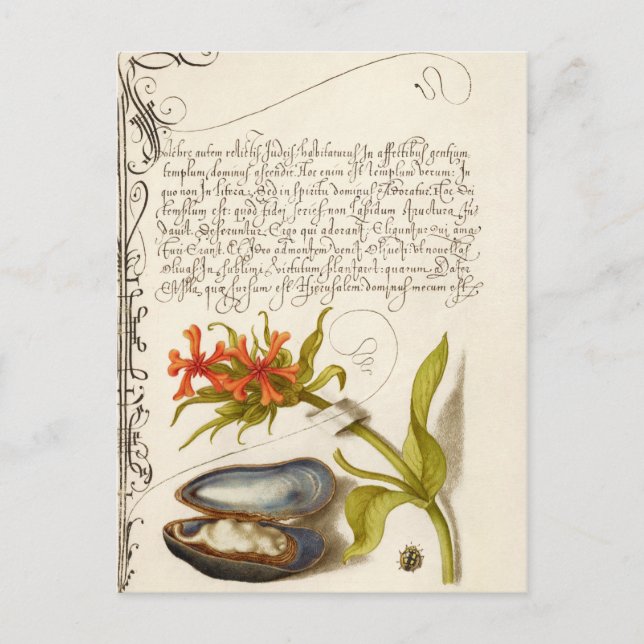 Pulchre autem relictis Judeis, habitaturus In affectibus gentium
templum, dominus ascendit. Hoc enim est templum verum: In
quo non In litera, Sed in spiritu dominus Adoratur. Hoc Dei
templum est: quod fidei series, non lapidum structura fu-
davit. Deseruntur Ergo qui adorant: Eliguntur qui ama
turi Erant. Et Ideo ad montem venit Oliueti: ut nouellas
Oliuas In sublimi, virtutum plantaret: quarum Mater
Est Illa, quæ sursum est Hierusalem: dominus mecum est